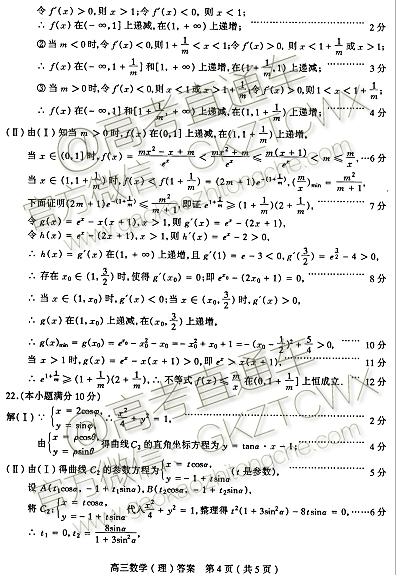 令 f′(x)>0,则 x>1;令 f′(x)<0, 则 x<1;
∴ f(x)在(-∞,1]上递减,在(1,+∞)上递增; ………… 2分
②当 m<0时,令 f′(x)<0,则1+1/m<x<1;令 f′(x)>0, 则 x<1+1/m 或 x>1;
∴ f(x)在(-∞,1+1/m]和[1,+∞)上递增,在(1+1/m,1)上递减; ………… 3分
③当 m>0时,令 f′(x)<0,则 x<1 或 x>1+1/m,令 f′(x)>0,则1<x<1+1/m;
∴ f(x)在(-∞,1]和[1+1/m,+∞)上递减,在(1,1+1/m)上递增; ………… 4分
(Ⅱ)由(Ⅰ)知当 m>0时,f(x)在(0,1]上递减,在(1,1+1/m]上递增,
当 x∈(0,1]时,f(x)=(mx²-x+m)/eˣ<(mx²+m)/eˣ≤m(x+1)/eˣ<m≤m/x,…6分
当 x∈(1,1+1/m]时,f(x)<f(1+1/m)=(2m+1)e^{-(1+1/m)},(m/x)min=m²/(m+1),
下面证明(2m+1)e^{-(1+1/m)}≤m²/(m+1),即证 e^{1+1/m}≥(1+1/m)(2+1/m), ………… 7分
令 g(x)=eˣ-x(x+1),x>1,则 g′(x)=eˣ-(2x+1),
令 h(x)=eˣ-(2x+1),x>1,则 h′(x)=eˣ-2>0,
∴ h(x)=g′(x)在(1,+∞)上递增,且 g′(1)=e-3<0,g′(3/2)=e^{3/2}-4>0,
∴ 存在 x₀∈(1,3/2)时,使得 g′(x₀)=0;即 e^{x₀}-(2x₀+1)=0, ………… 8分
∴ 当 x∈(1,x₀)时,g′(x)<0;当 x∈(x₀,3/2)时,g′(x)>0,
∴ g(x)在(1,x₀)上递减,在(x₀,3/2)上递增,
∴ g(x)min=g(x₀)=e^{x₀}-x₀²-x₀=-x₀²+x₀+1=-(x₀-1/2)²+5/4>0, ………… 10分
当 x>1时,g(x)=eˣ-x(x+1)>0,即 eˣ>x(x+1), ………… 11分
∴ e^{1+1/m}≥(1+1/m)(2+1/m),∴ 不等式 f(x)≤m/x 在(0,1+1/m]上恒成立. … 12分
22.(本小题满分10分)
解(Ⅰ)∵{x=2cosφ, y=sinφ, ∴ x²/4+y²=1, ………… 2分
由{x=ρcosθ y=ρsinθ 得曲线C₂的直角坐标方程为 y=tanα·x-1; ………… 4分
(Ⅱ)由(Ⅰ)得曲线C₂的参数方程为{x=tcosα, y=-1+tsinα (t是参数), ………… 5分
设 A(t₁cosα,-1+t₁sinα),B(t₂cosα,-1+t₂sinα),
将C₂:{x=tcosα y=-1+tsinα 代入x²/4+y²=1,整理得 t²(1+3sin²α)-8tsinα=0, ……6分
∴ t₁=0,t₂=8sinα/(1+3sin²α),
高三数学(理)答案 第4页(共5页)
@高考直通车
官方微号:GKZTCWX